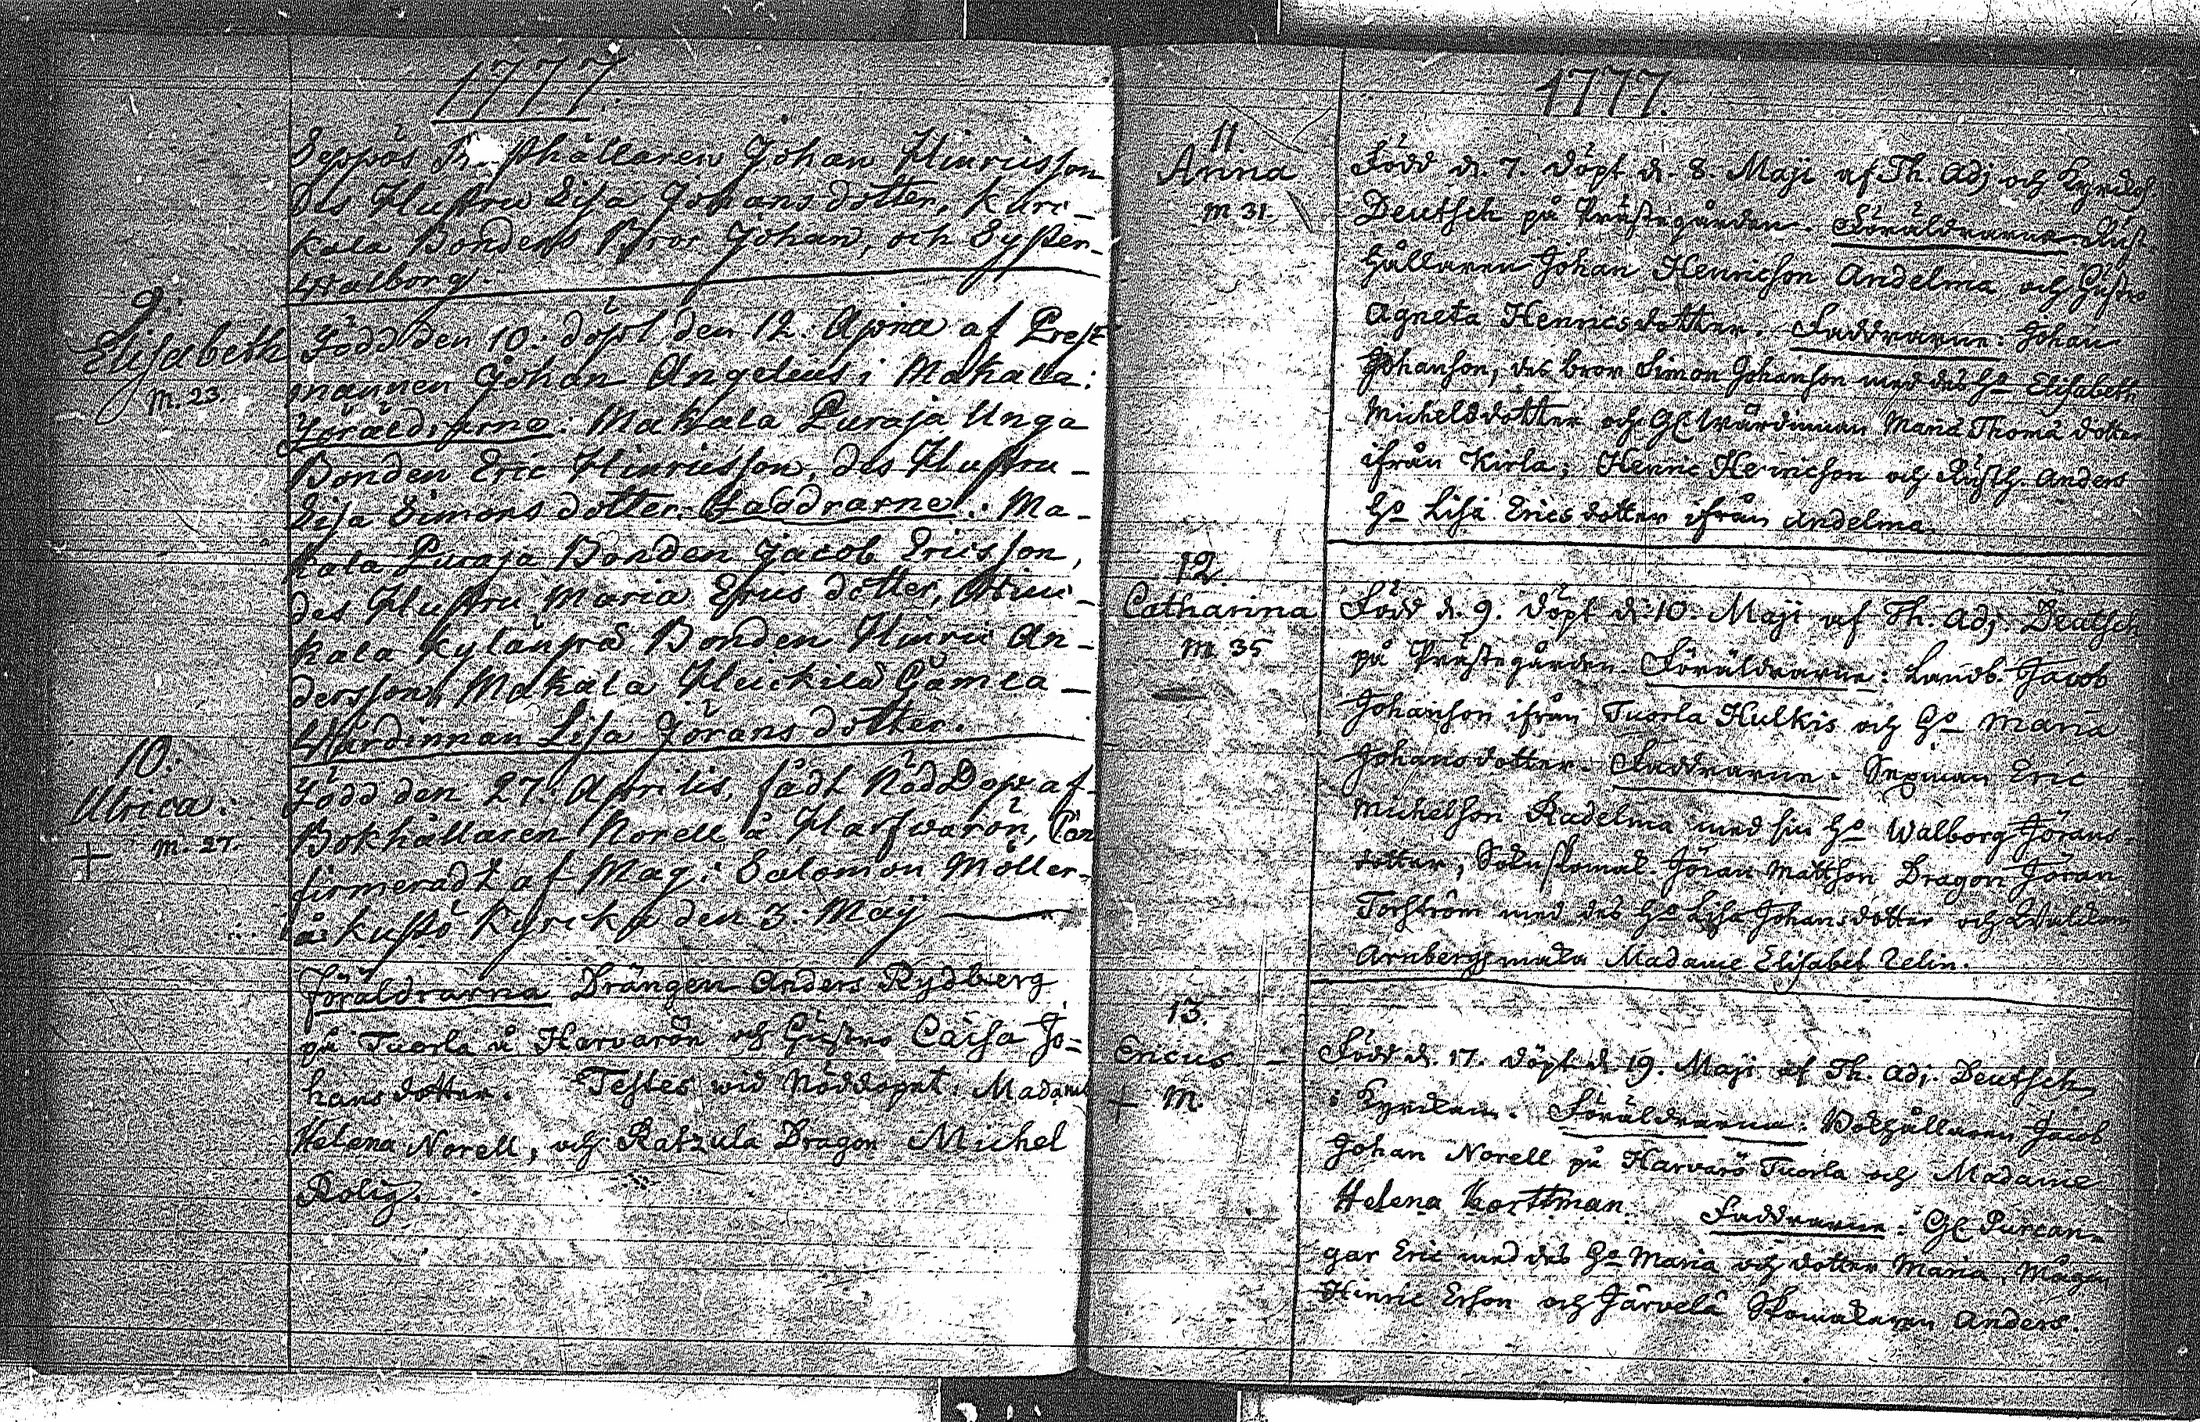 1777
Seppos R sthållaren Johan Hinricsson
Des Hustru Lisa Johans dotter, Kurc-
kala Bondens Bror Johan, och Syster-
Walborg.
9:
Elisabeth
m. 23.
Född den 10. döpt den 12. April af Prest
mannen Johan Angelius i Makala:
Föräldrarne: Makala Puraja Unga
Bonden Eric Hinricsson, des Hustru-
Lisa Simons dotter. Faddrarne: Ma-
kala Puraja Bonden Jacob Ericsson,
des Hustru Maria Ersus dotter,
kala Kylänpää Bonden Hinric An-
dersson, Makala Heickilä Gamla
Wärdinnan Lisa Jörans dotter.
10:
Ulrica:
+ m. 27.
Född den 27. Aprilis, fådt Nöd Dop af
Bokhållaren Norell å Harfvarön, Con
firmeradt af Mag: Salomon Möller
å Kustö Kyrcka den 3: Maij
föräldrarna Drängen Anders Rydberg
på Tuorla å Harvarön och Hustro Caisa Jo-
hans dotter. Testes wid Nöddopet: Madame
Helena Norell, och Ratzula Dragon Michel
Rolig.
1777.
11.
Anna
m. 31.
Född d. 7. döpt d. 8. Maji af Th. Adj och Kyrckoh
Deutsch på Prästegården. Föräldrarne Rust
hållaren Johan Henricson Andelma och Hustro
Agneta Henricsdotter. Faddrarne: Johan
Johanson, des bror Simon Johanson med des Ho Elisabeth
Michelsdotter och Gl. Wärdinnan Maria Thomæ dotter
ifrån Kirla; Henric Henricson och Rusth. Anders
Ho Lisa Erics dotter ifrån Andelma.
12.
Catharina
m. 35
Född d. 9. döpt d. 10. Maji af Th. Adj. Deutsch
på Prästegården Föräldrarne: Landb. Jacob
Johanson ifrån Tuorla Hulkis och Ho Maria
Johansdotter. Faddrarne: Sexman Eric
Michelson Radelma med sin Ho Walborg Jörans-
dotter, Sokneskomak. Jöran Mattson Dragon Jöran
Torström med des Ho Lisa Johansdotter och
Arnbergs maka Madame Elisabet Zelin.
13.
Ericus
+ m.
Född d. 17. döpt d. 19. Maji af Th. Adj. Deutsch
i Kyrckan. Föräldrarne: Bokhållaren Jacob
Johan Norell på Harvarö Tuorla och Madame
Helena Horttman. Faddrarne: Gl Purcan-
gar Eric med des Ho Maria och dotter Maria, Mågen
Hinric Erson och Järvelä Skomakaren Anders.